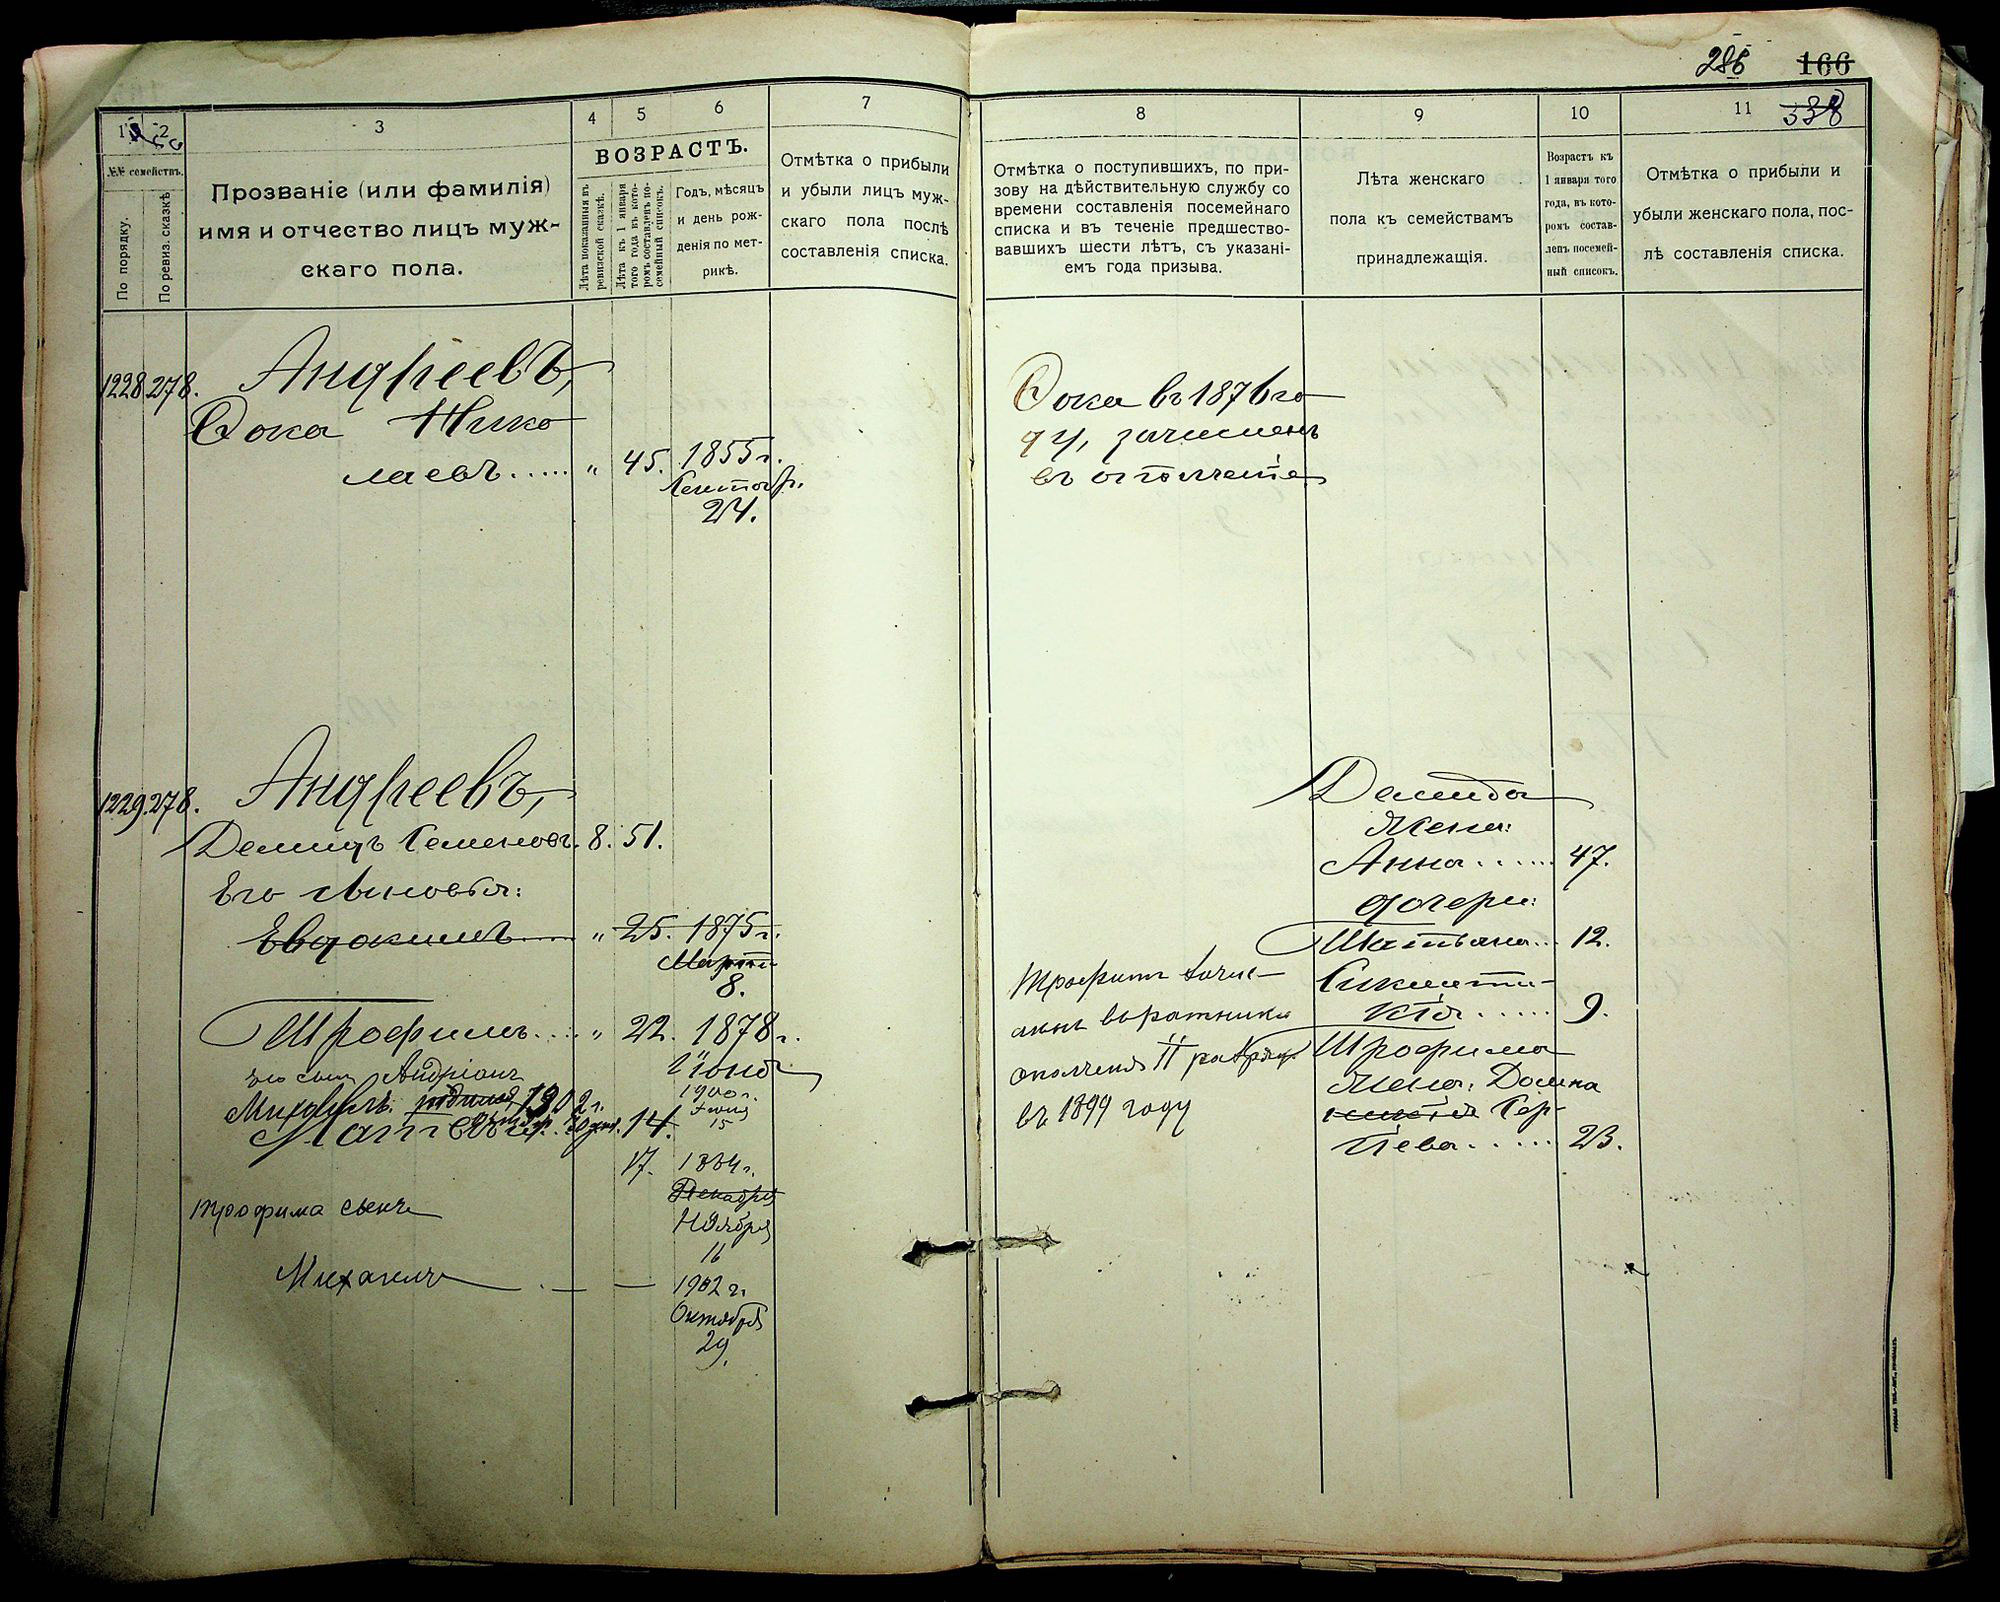 286 166
338
1 2
3
4
5
6
7
№№ семействъ.
По порядку.
По ревиз. сказкѣ
Прозваніе (или фамилія)
имя и отчество лицъ муж-
скаго пола.
ВОЗРАСТЪ.
Лѣта показанныя въ
ревизской сказкѣ.
Лѣта къ 1 января
того года въ кото-
ромъ составленъ по-
семейный списокъ.
Годъ, мѣсяцъ
и день рож-
денія по мет-
рикѣ.
Отмѣтка о прибыли
и убыли лицъ муж-
скаго пола послѣ
составленія списка.
1228. 278. Андреевъ,
Фока Нико
лаевъ..... „ 45. 1855 г.
Сентябр.
24.
1229. 278. Андреевъ,
Демидъ Семеновъ. 8. 51.
Его сыновья:
Евдокимъ.... „ 25. 1875 г.
Марта
8.
Трофимъ..... „ 22. 1878 г.
Іюня
его сынъ Андріанъ 1900 г.
15
Михаилъ родился 1902 г.
Матвей 14.
17. 1884 г.
Декабря
Ноября
16
Трофима сынъ
Михаилъ — — 1902 г.
Октября
29.
8
9
10
11
Отмѣтка о поступившихъ, по при-
зову на дѣйствительную службу со
времени составленія посемейнаго
списка и въ теченіе предшество-
вавшихъ шести лѣтъ, съ указані-
емъ года призыва.
Лѣта женскаго
пола къ семействамъ
принадлежащія.
Возрастъ къ
1 января того
года, въ кото-
ромъ состав-
ленъ посемей-
ный списокъ.
Отмѣтка о прибыли и
убыли женскаго пола, пос-
лѣ составленія списка.
Фока въ 1876 го
ду, зачисленъ
въ ополченіе
Трофимъ зачис-
ленъ въ ратники
ополченія II разряда
въ 1899 году
Демида
жена:
Анна...... 47.
дочери:
Татьяна... 12.
Синклити-
кія..... 9.
Трофима
жена: Домна
Сер-
гіева...... 23.